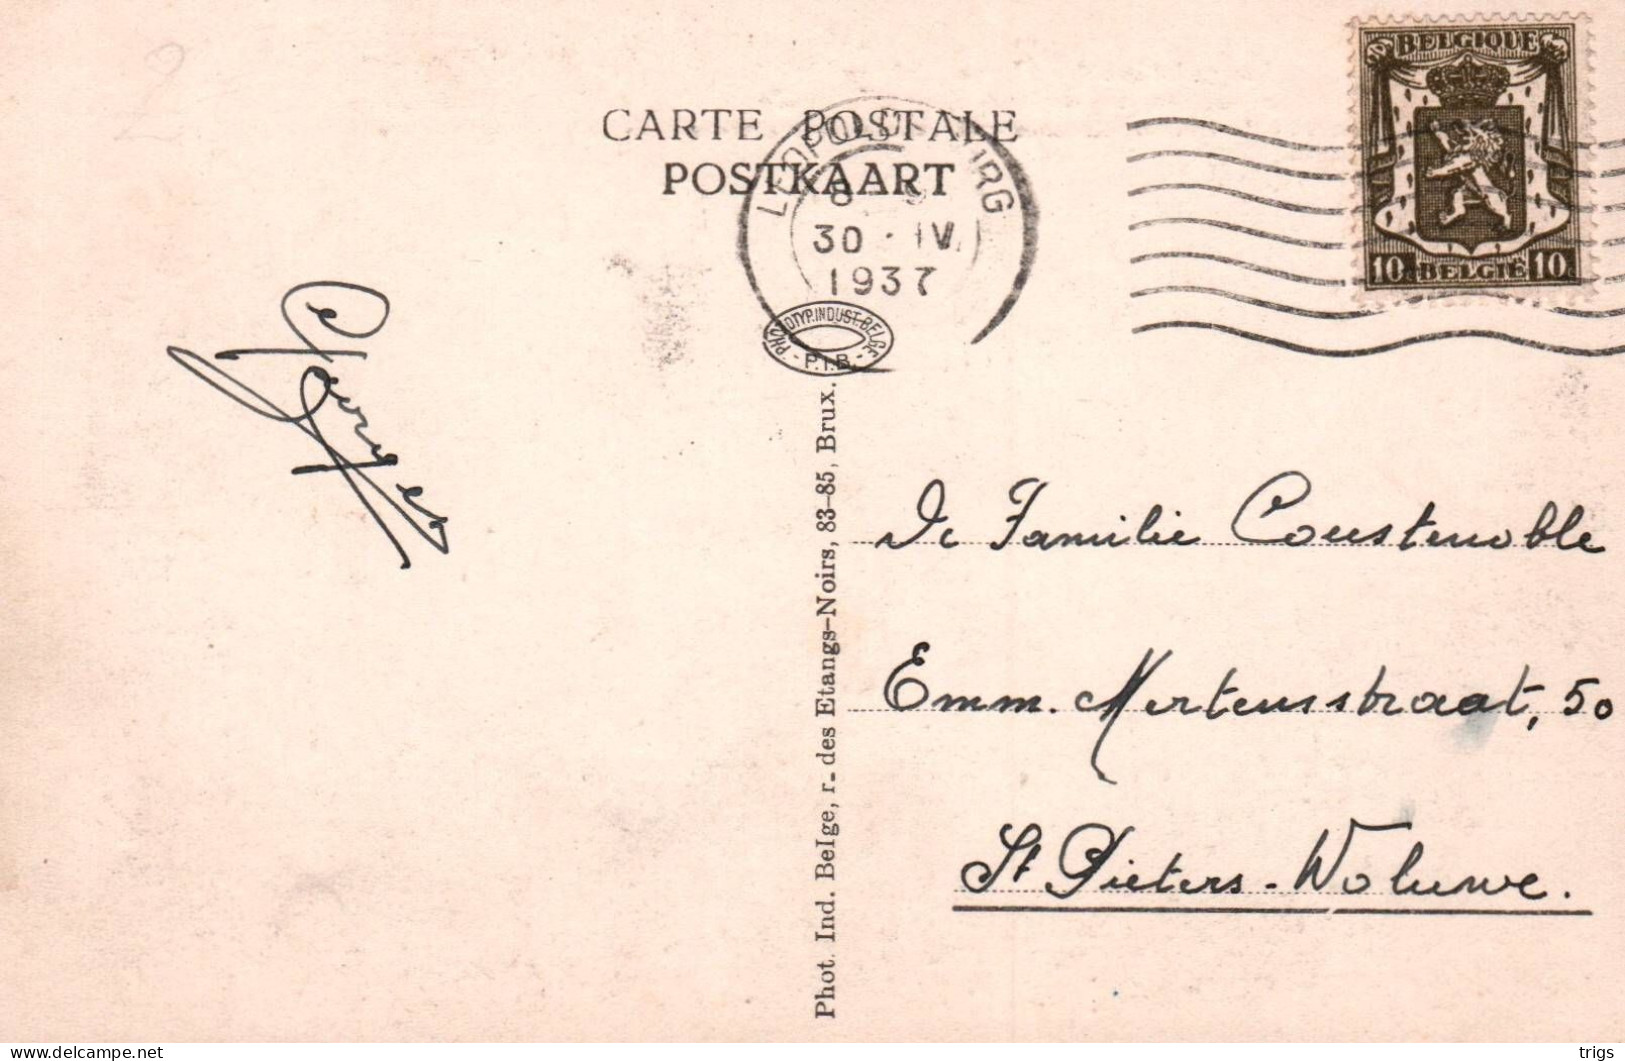 CARTE POSTALE
POSTKAART
30 · IV
1937
BELGIQUE
10 BELGIË 10
PHOTOTYP. INDUST. BELGE
- P.I.B. -
Phot. Ind. Belge, r. des Etangs-Noirs, 83-85, Brux.
De Familie Coustenoble
Emm. Mertensstraat, 50
St Pieters-Woluwe.
delcampe.net
trigs